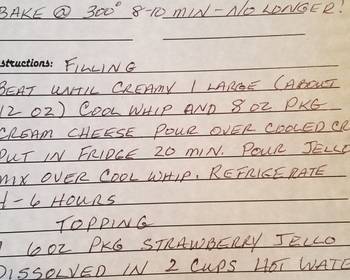 BAKE @ 300° 8-10 MIN - NO LONGER!
structions: FILLING
BEAT UNTIL CREAMY 1 LARGE (ABOUT
12 OZ) COOL WHIP AND 8 OZ PKG
CREAM CHEESE POUR OVER COOLED CR
PUT IN FRIDGE 20 MIN. POUR JELLO
MIX OVER COOL WHIP. REFRIGERATE
4-6 HOURS
TOPPING
1 6 OZ PKG STRAWBERRY JELLO
DISSOLVED IN 2 CUPS HOT WATE